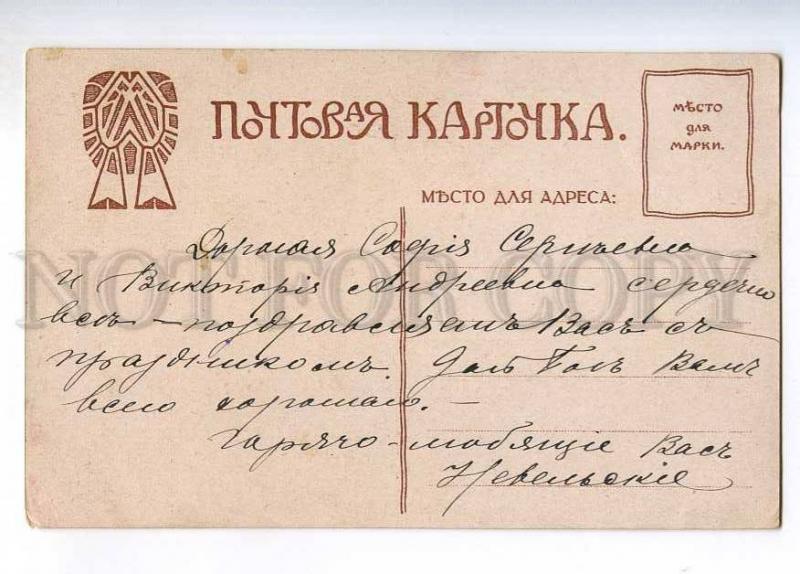 ПОЧТОВАЯ КАРТОЧКА.
МѢСТО
для
МАРКИ.
МѢСТО ДЛЯ АДРЕСА:
Дорогая Софія Сергѣевна
и Викторія Андреевна сердечно
всѣ – поздравляемъ Васъ съ
праздникомъ. Дай Богъ Вамъ
всего хорошаго. –
Горячо – любящіе Васъ
Невельскіе
NOT FOR COPY